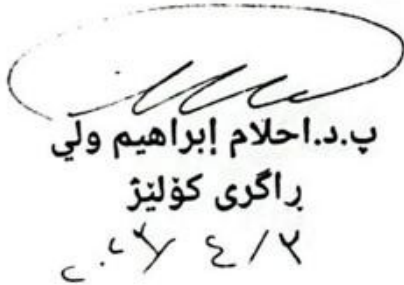 پ.د.احلام إبراهیم ولي
ڕاگری کۆلێژ
٢٠٢٣/٤/٣